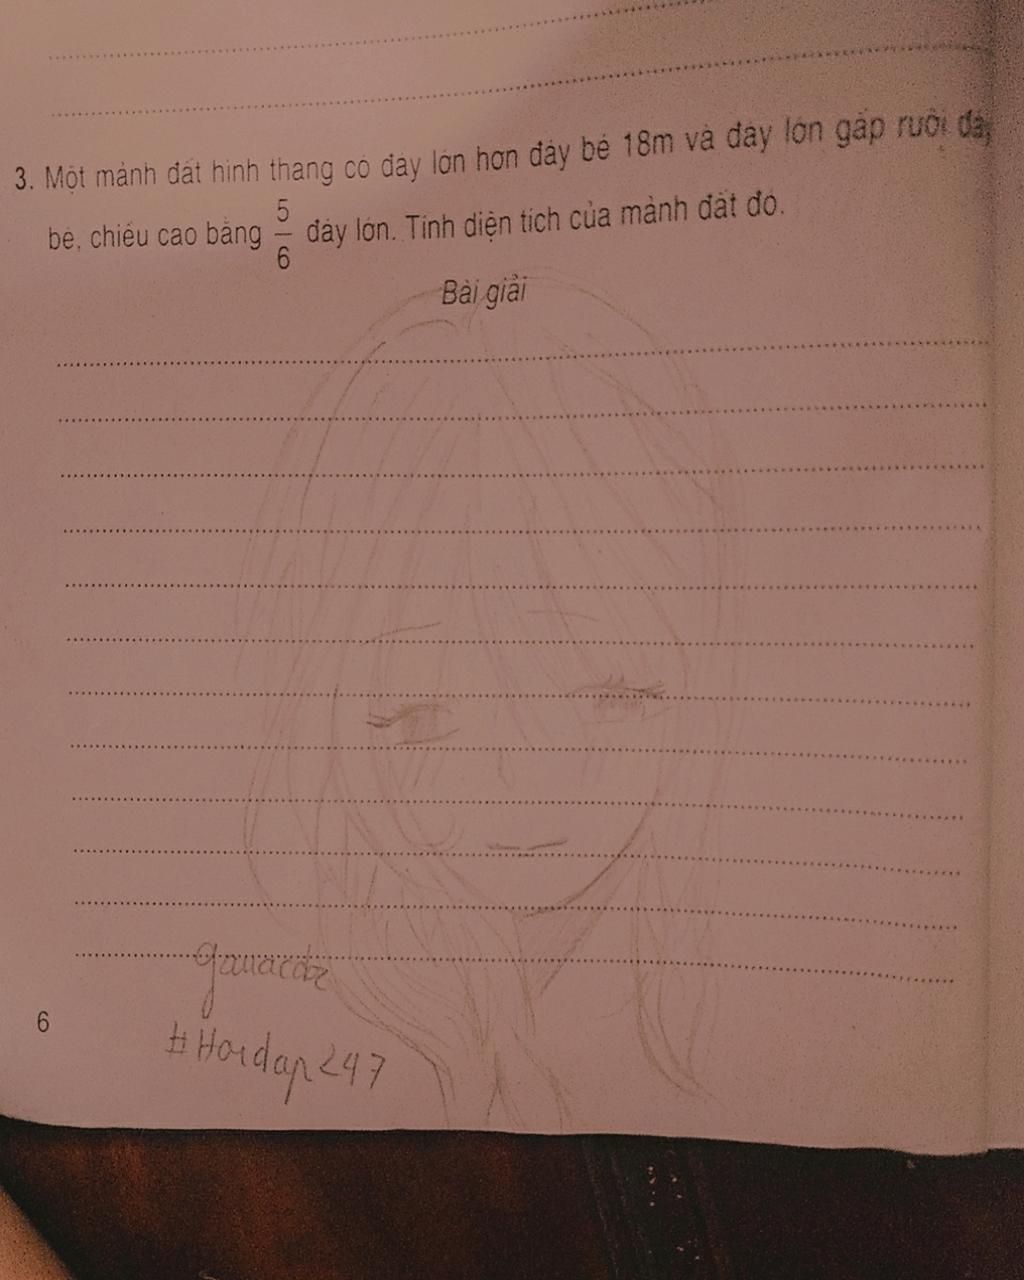 3. Một mảnh đất hình thang có đáy lớn hơn đáy bé 18m và đáy lớn gấp rưỡi đáy
bé, chiều cao bằng 5/6 đáy lớn. Tính diện tích của mảnh đất đó.
Bài giải
6
#Hoidap247